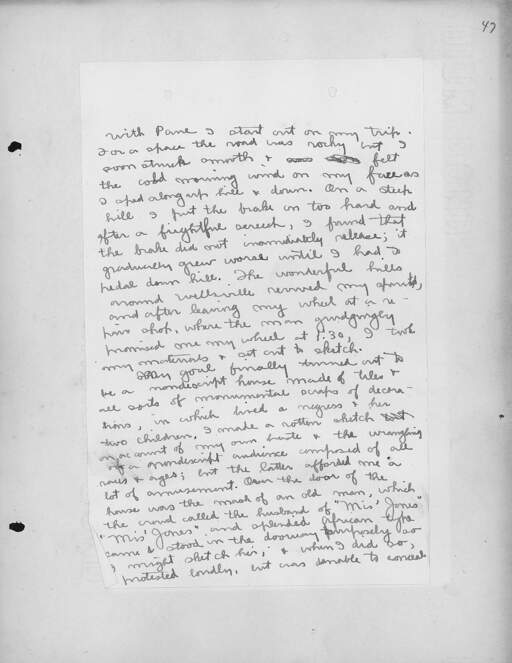 47
with Pane I start out on my trip.
For a space the road was rocky but I
soon struck smooth & felt
the cold morning wind on my face as
I sped along up hill & down. On a steep
hill I put the brake on too hard and
after a frightful screech, I found that
the brake did not immediately release; it
gradually grew worse until I had to
pedal down hill. The wonderful hills
around Wellsville revived my spirits,
and after leaving my wheel at a re-
pair shop, where the man grudgingly
promised me my wheel at 1:30, I took
my materials & set out to sketch.
My goal finally turned out to
be a nondescript house made of tiles &
all sorts of monumental scraps of decora-
tions, in which lived a negress & her
two children. I made a rotten sketch
on account of my own haste & the wrangling
of a nondescript audience composed of all
races & ages; but the latter afforded me a
lot of amusement. Over the door of the
house was the mask of an old man, which
the crowd called the husband of "Mis' Jones"
"Mis' Jones" and splendid African type
came & stood in the doorway purposely so
I might sketch her, & when I did so,
protested loudly, but was unable to conceal